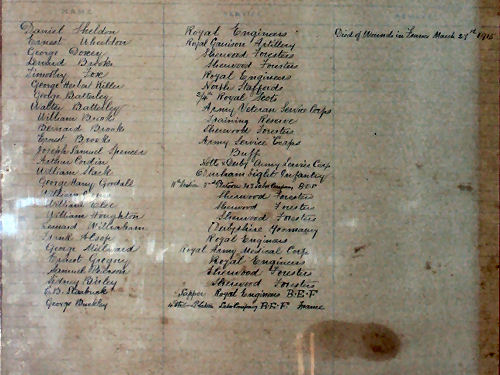 NAME
Daniel Sheldon Royal Engineers Died of Wounds in France March 27th 1915
Ernest Wheeldon Royal Garrison Artillery
George Doxey Sherwood Foresters
Bernard Brooks Sherwood Foresters
Timothy Royal Engineers
George Herbert North Staffords
George Batterley 2/4th Royal Scots
Walter Batterley Army Veteran Service Corps
William Brooks Training Reserve
Bernard Brooks Sherwood Foresters
Ernest Brooks Army Service Corps
Joseph Samuel Spencer Buffs
Arthur Notts & Derby Army Service Corps
William Slack Durham Light Infantry
George Harry Goodall Labor Company B.E.F
William Sherwood Foresters
William Sherwood Foresters
William Houghton Sherwood Foresters
Leonard Derbyshire Yeomanry
Frank Royal Engineers
George Millward Royal Army Medical Corp
Ernest Gregory Royal Engineers
Samuel Sherwood Foresters
Sidney Sherwood Foresters
Sapper Royal Engineers B.E.F
George Buckley Labor Company B.E.F France